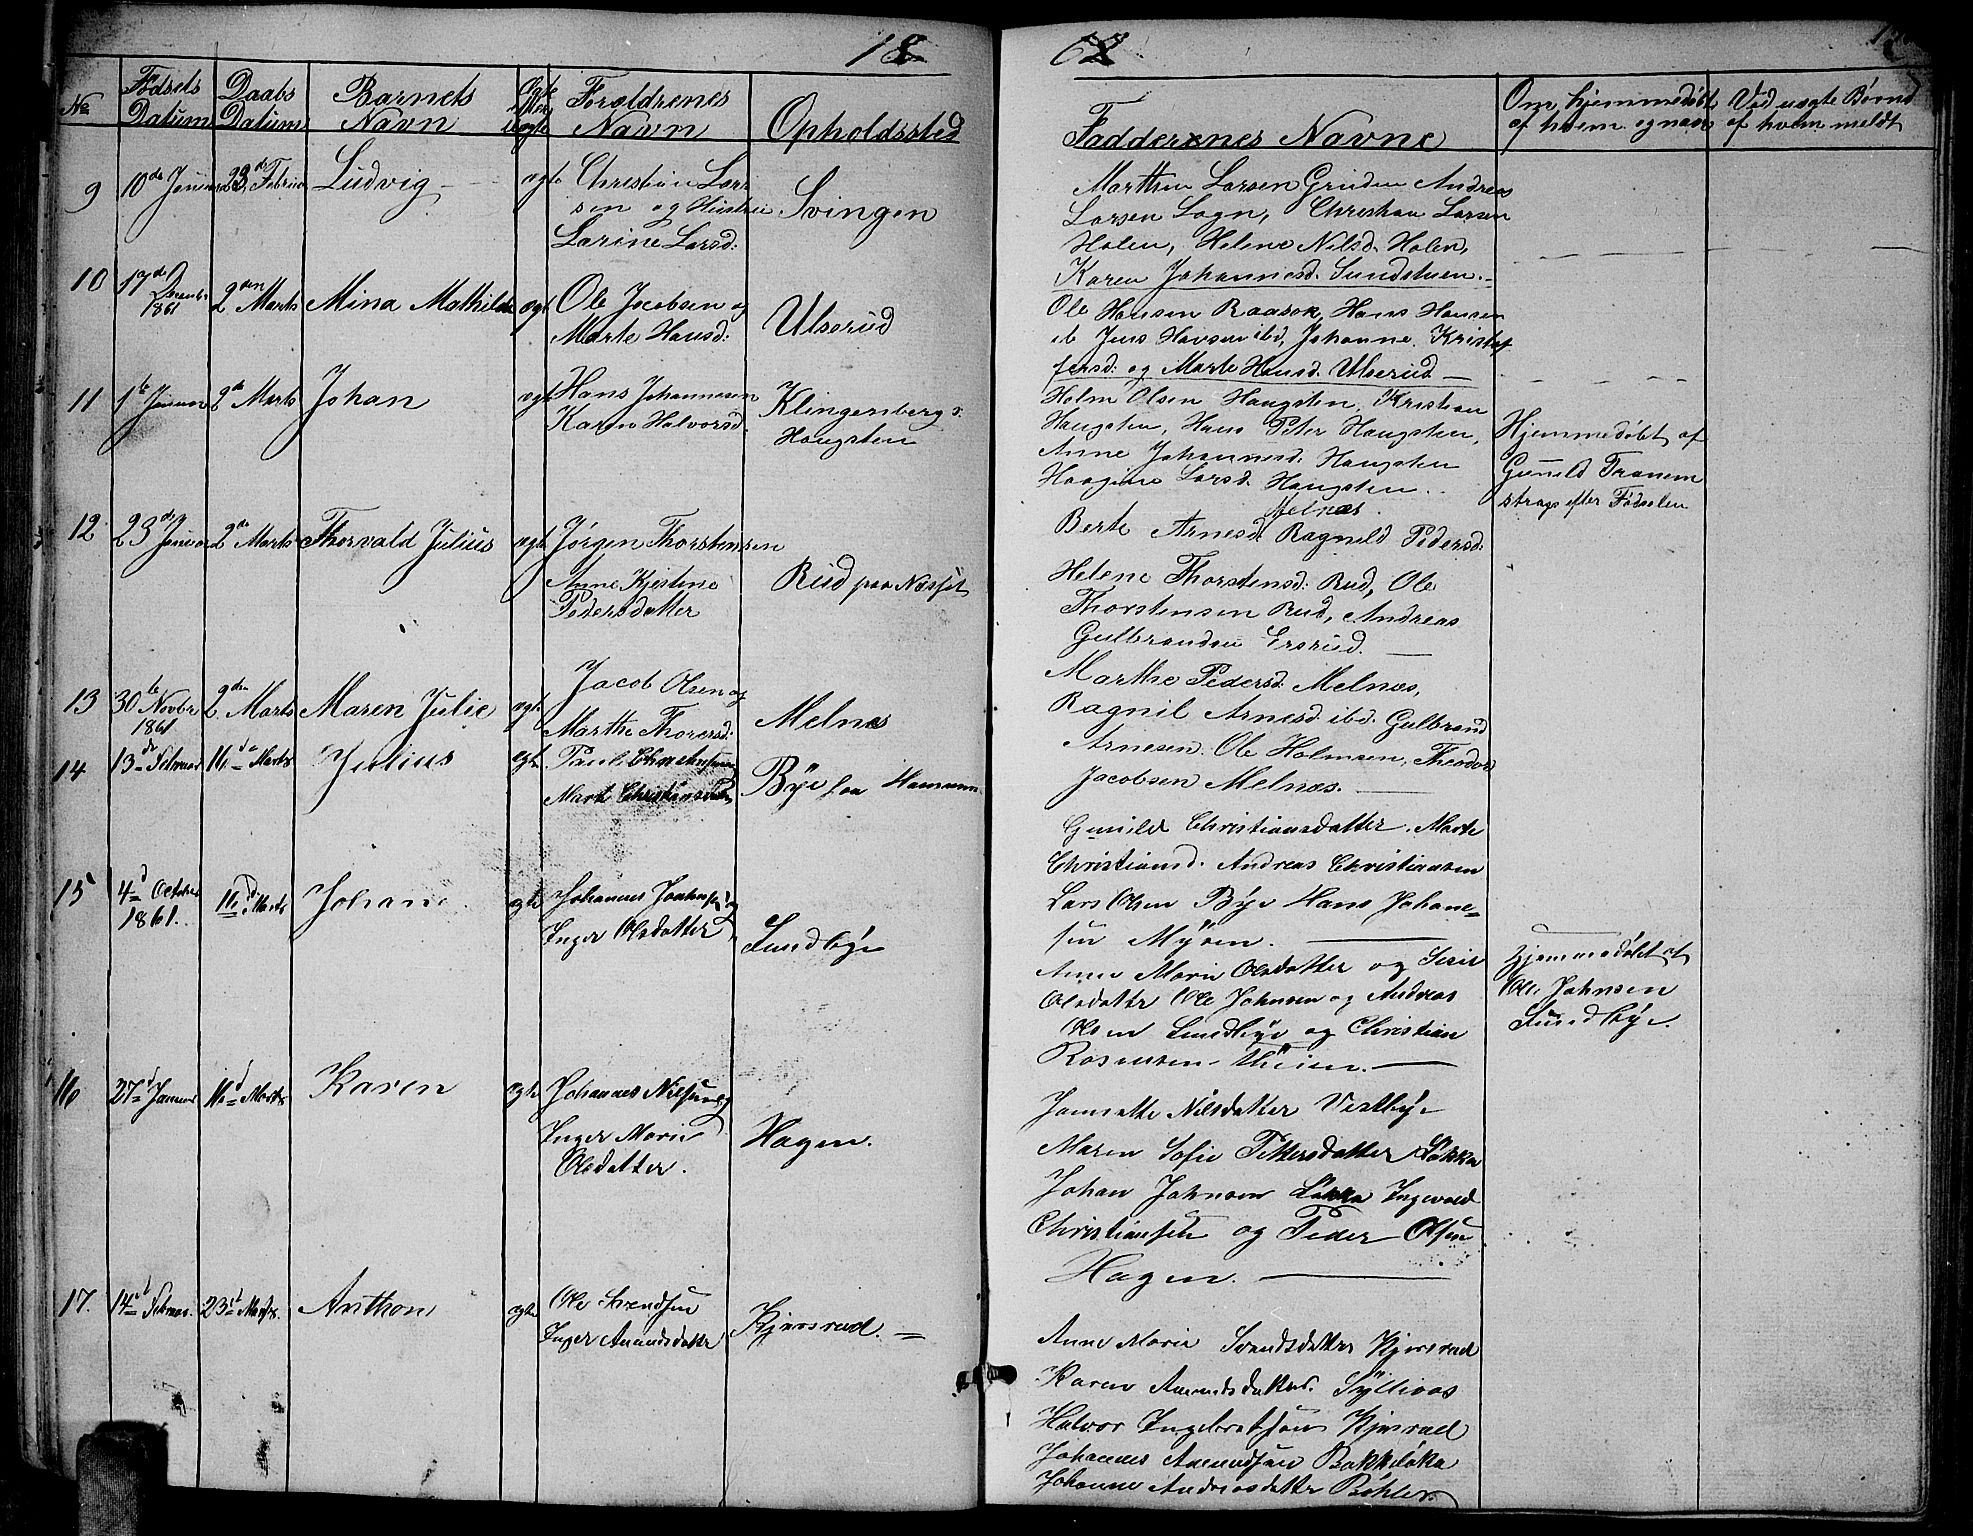 18 62
No. Fødsels Datum Daabs Datum Barnets Navn Ægte eller uægte Forældrenes Navn Opholdssted
Faddernes Navne Om hjemmedøbt af hvem og naar Ved uægte Børn af hvem meldt
9 10de Januar 23de Februar Ludvig ægte Christian Lar-
sen og Hustru Svingen
Larine Larsd:
Marthin Larsen Gruden Andreas
Larsen Sogn, Christian Larsen
Holen, Helene Nilsd. Holen,
Karen Johannesd. Sundstuen.
10 17de Decembr 1861 2den Marts Mina Mathilde ægte Ole Jacobsen og
Marte Hansd: Ulserud
Ole Hansen Raasok, Hans Hansen
ib Jens Hansen ibd, Johanne Kristof
fersd: og Marte Hansd. Ulserud
11 1te Januar 2de Marts Johan ægte Hans Johannesen
Karen Halvorsd. Klingenberg
Haugsten
Holm Olsen Haugsten, Kristian
Haugsten, Hans Peter Haugsten,
Anne Johannesd: Haugsten
Haagine Larsd. Haugsten.
Hjemmedøbt af
Gunild Tranem
strags efter Fødselen
12 23de Januar 2de Marts Thorvald Julius ægte Jørgen Thorstensen
Anne Kjestine Rud paa Næsset
Pedersdatter
Melnæs.
Berte Arnesd. Ragnild Pedersd:
Helene Thorstensd: Rud, Ole
Thorstensen Rud, Andreas
Gulbrandsen Ersrud.
13 30te Novbr 1861 2den Marts Maren Julie ægte Jacob Olsen og
Marthe Thorersd: Melnæs
Marthe Pedersd: Melnæs,
Ragnil Arnesd. ibd. Gulbrand
Arnesen. Ole Holmsen, Theodor
Jacobsen Melnæs.
14 13de Februar 16de Marts Julius ægte Paul Christiansen
Marte Christiansdatter Bÿe paa
Gunild Christiansdatter. Marte
Christiansd. Andreas Christiansen
Lars Olsen Bÿe Hans Johane-
sen Mÿren.
15 4d October 1861. 16d Marts Johan ægte Johannes Johnsen og
Inger Olsdatter Sundbÿe
Anne Marie Olsdatter og Siri
Olsdatter Ole Johnsen og Andreas
Olsen Sundbÿe og Christian
Hjemmedøbt af
Ole Johnsen
Sundbÿe.
16 27d Januar 16d Marts Karen ægte Johannes Nilsen og
Inger Marie Hagen.
Olsdatter.
Jannette Nilsdatter Vestbÿe
Maren Sofie Pettersdatter Løkka
Johan Johnsen Løkka Ingevald
Christiansen og Peder Olsen
Hagen.
17. 14d Februar. 23d Marts. Anthon ægte Ole Svendsen
Inger Amundsdatter Kjinsrud.
Anne Marie Svendsdatter Kjinsrud
Karen Amundsdatter. Sÿllioas
Halvor Ingebretsen Kjinsrud
Johannes Amundsen Bakkeløka
Johanne Andreasdatter Bøhler.